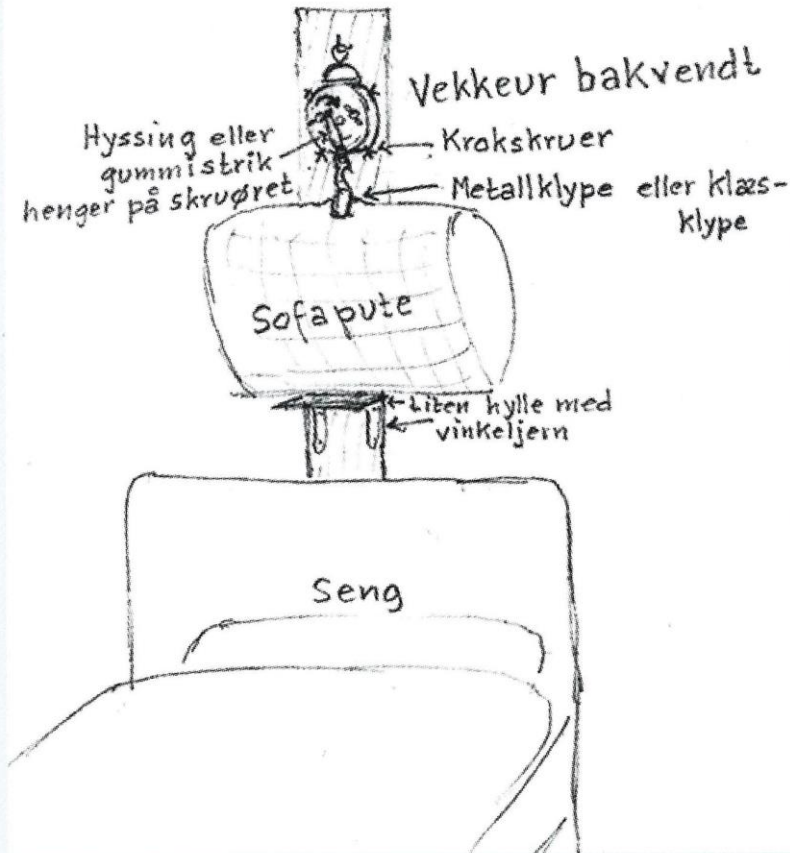 Vekkeur bakvendt
Hyssing eller
gummistrik
henger på skruøret
Krokskruer
Metallklype eller klæs-
klype
Sofapute
Liten hylle med
vinkeljern
Seng